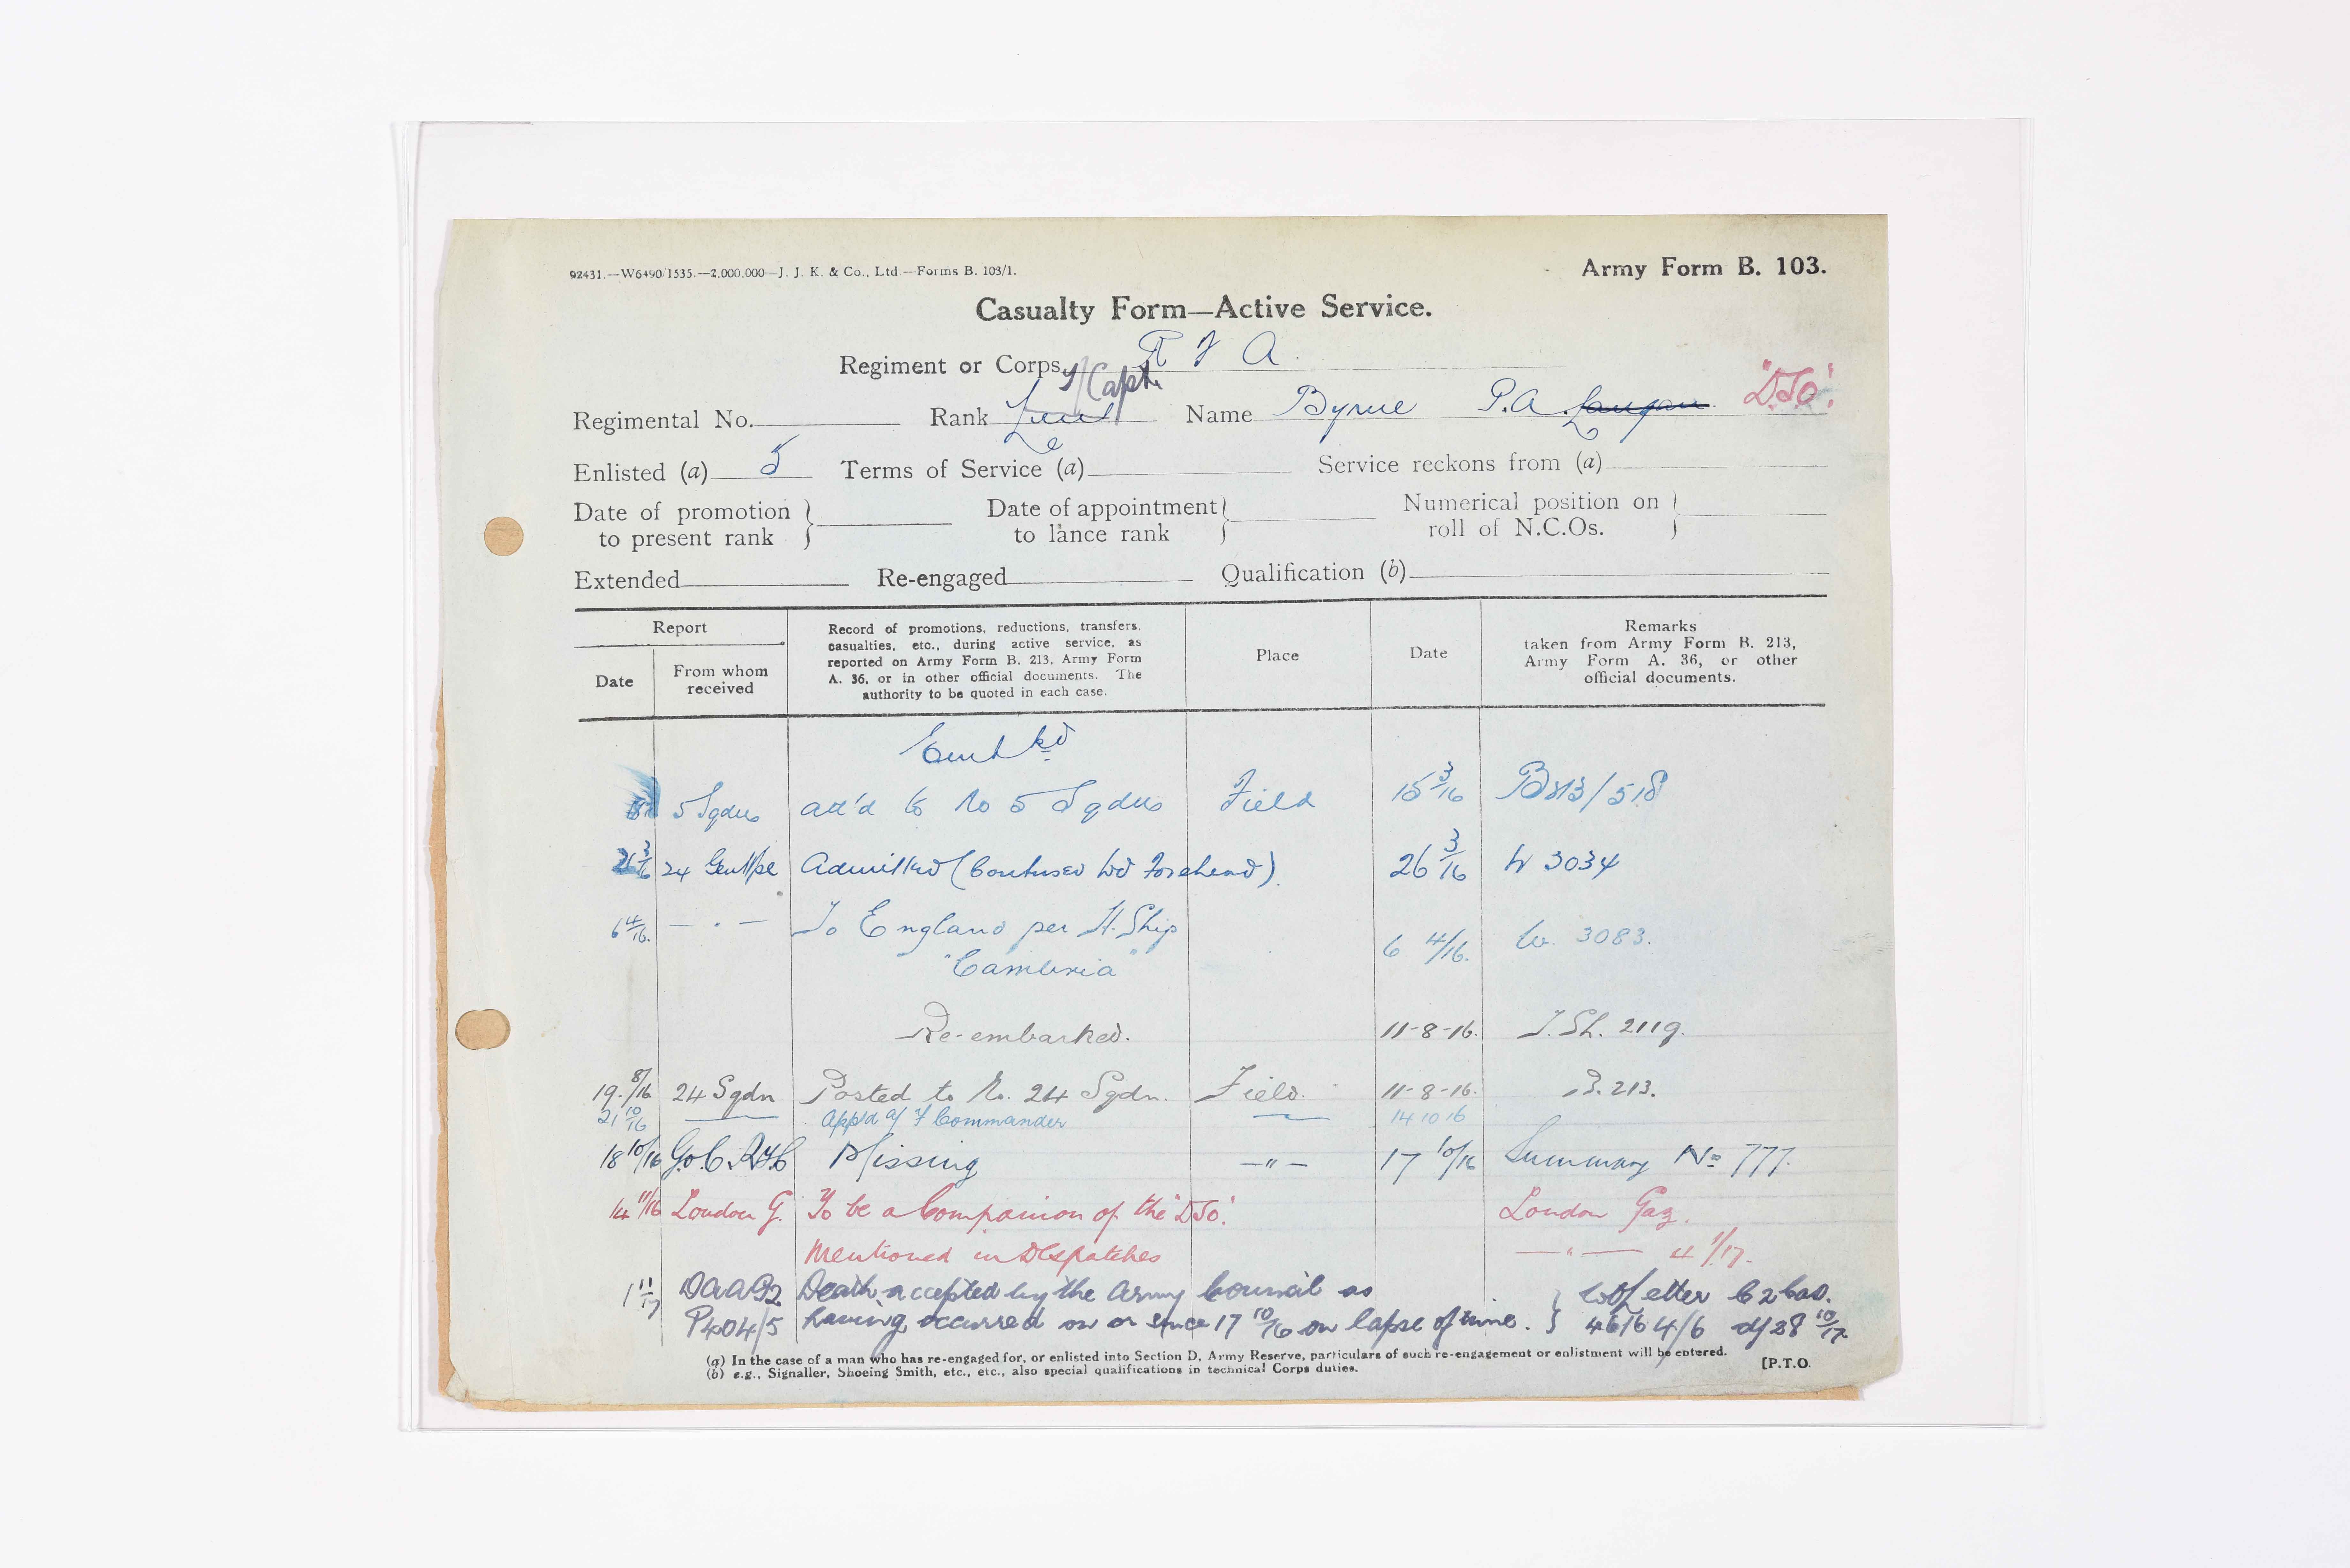 92431.—W6490/1535.—2,000,000—J. J. K. & Co., Ltd.—Forms B. 103/1.
Army Form B. 103.
Casualty Form—Active Service.
Regiment or Corps R F A.
T/Capt.
Regimental No. Rank Lieut Name Byrne P.A. Langan "DSO".
Enlisted (a) 5 Terms of Service (a) Service reckons from (a)
Date of promotion to present rank } Date of appointment to lance rank } Numerical position on roll of N.C.Os. }
Extended Re-engaged Qualification (b)
Report
Date
From whom received
Record of promotions, reductions, transfers, casualties, etc., during active service, as reported on Army Form B. 213, Army Form A. 36, or in other official documents. The authority to be quoted in each case.
Place
Date
Remarks taken from Army Form B. 213, Army Form A. 36, or other official documents.
Embkd
5 Sqdn att'd to No 5 Sqdn Field 15 3/16 B213/518
26 3/16 24 Genl Admitted (Contused Wd Forehead). 26 3/16 W 3034
6 4/16. — . — To England per H. Ship 6 4/16. W. 3083.
"Cambria"
Re-embarked. 11-8-16. 
19. 8/16 24 Sqdn Posted to No. 24 Sqdn. Field. 11-8-16. B. 213.
21 10/16 App'd a/ F Commander 14 10 16
18 10/16 G.O.C. RFC Missing —"— 17 10/16 Summary No 777.
14 11/16 London G. To be a Companion of the "DSO". London Gaz.
Mentioned in Despatches —"— 4 1/17.
1 11/17 DAAG2 Death accepted by the Army Council as } WO Letter C2 Cas.
P404/5 having occurred on or since 17 10/16 on lapse of time. } 46164/6 d/28 10/17
(a) In the case of a man who has re-engaged for, or enlisted into Section D, Army Reserve, particulars of such re-engagement or enlistment will be entered.
(b) e.g., Signaller, Shoeing Smith, etc., etc., also special qualifications in technical Corps duties.
[P.T.O.